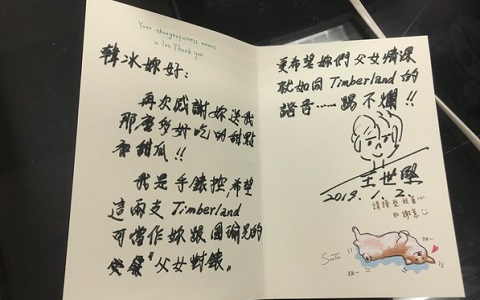 Your thoughtfulness means
a lot. Thank you
韓冰妳好：
再次感謝妳送我
那麼多好吃的甜點
和甜瓜!!
我是手錶控,希望
這兩支Timberland
可當作妳跟國瑜兄的
父女對錶。
更希望妳們父女情深
就如同Timberland的
諧音……踢不爛!!
王世堅
2019.1.2.